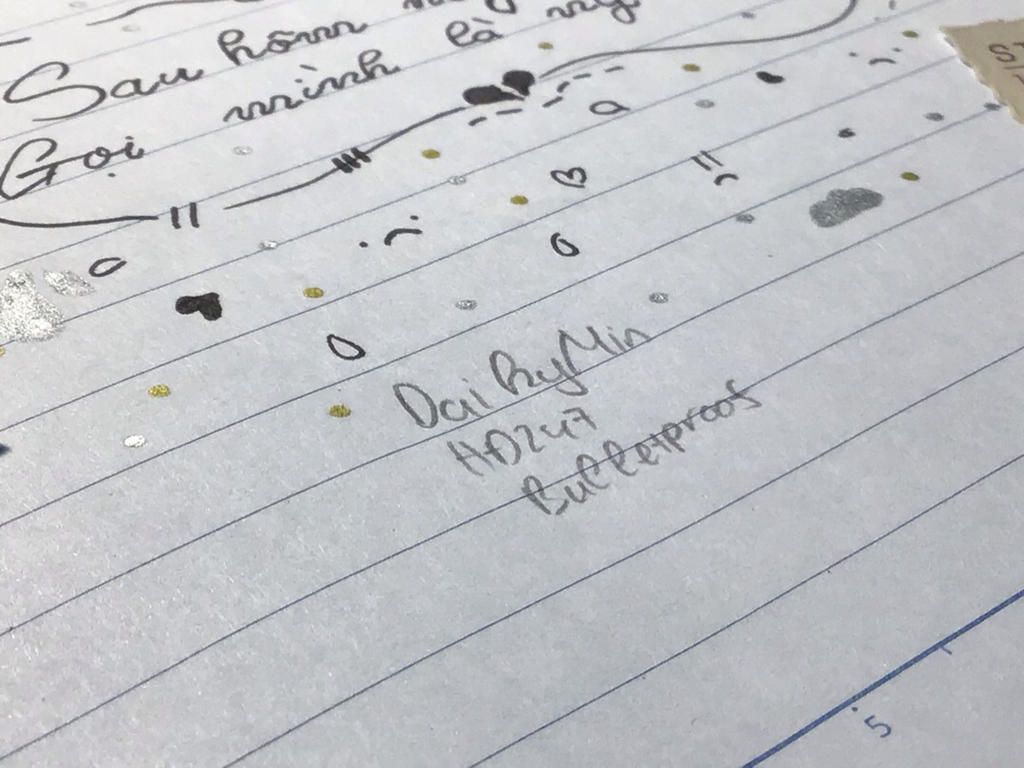 Sau hôm
Gọi mình là
DaiKyMin
HĐ247
Bulletproof
5